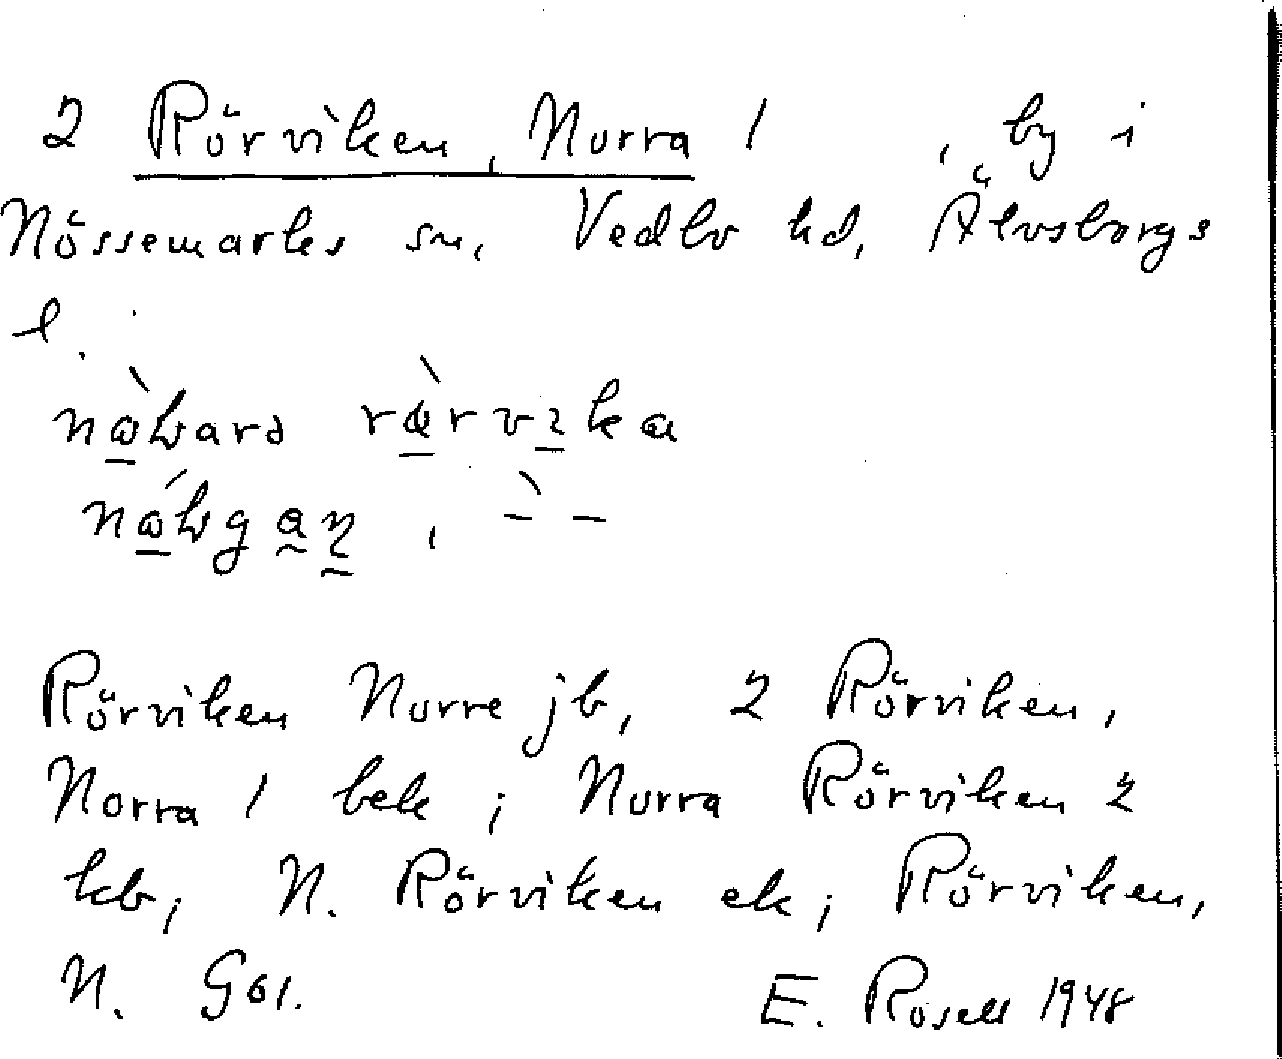 2 Rörviken, Norra 1, by i
Nössemarks sn, Vedbo hd, Älvsborgs
l.
Rörviken Norre jb, 2 Rörviken,
Norra 1 bek; Norra Rörviken 2
kb; N. Rörviken ek; Rörviken,
N. GSl. E. Rosell 1948